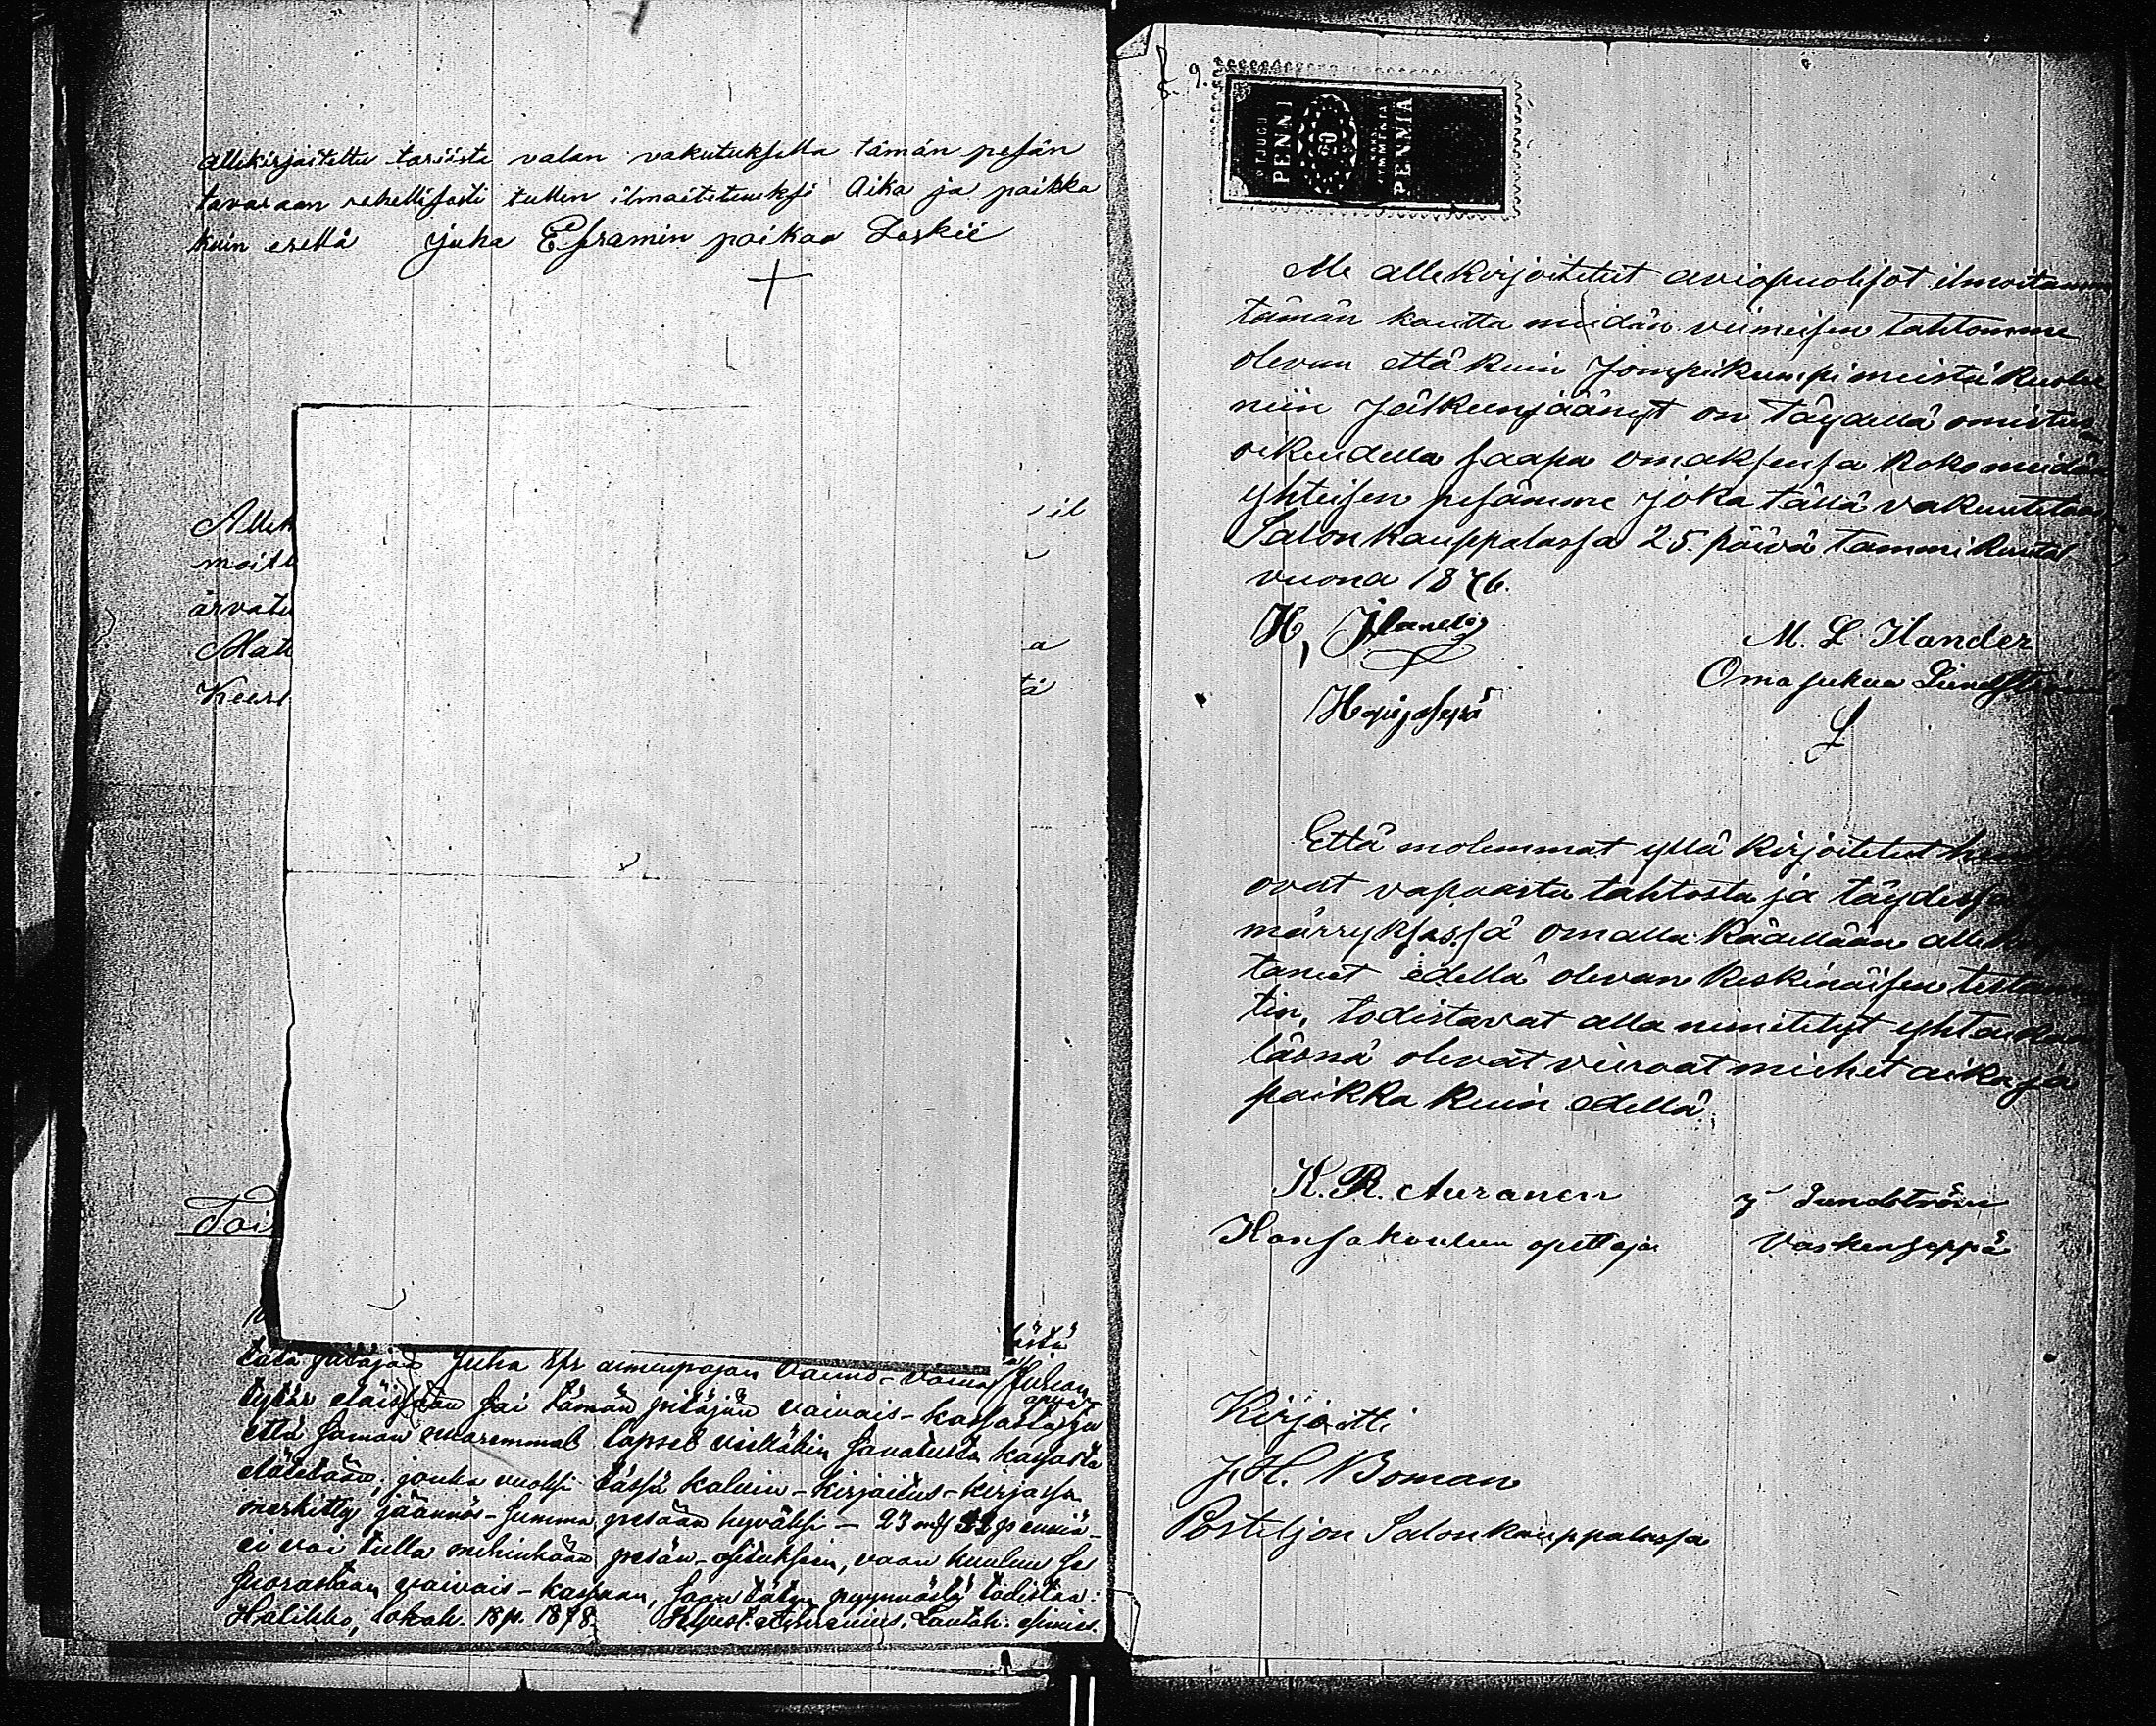 allekirjoitettu tariista valan vakutuksella tämän pesän
tavaraan rehellisesti tullen ilmoitetuuksi Aika ja paikka
kuin erellä Juha Efframin poikaa Leskii
Allek
moite
arvatu
Matt
Keert
il
a
tä
Toi
ästä
Juha
tytär eläissään sai tämän pitäjän vaivais-kassasta apua
että saman nuoremmat lapset vielläkin sanatusta kassasta
elätetään; jonka vuoksi tässä kaluin-kirjoitus-kirjassa
merkitty jäännös-summa pesään hyväksi - 23 mk 32 penniä -
ei voi tulla mihinkään pesän-ositukseen, vaan kuuluu se
suorastaan vaivais-kassaan, saan täten pyynnöstä todistaa:
Halikko, lokak. 18 p. 1878. Lautak: esimies.
§ 9.
PENNI
60
KYMMENTÄ
PENNIÄ
Me allekirjoitetut aviopuolisot ilmoitamme
tämän kautta meidän viimeisen tahtomme
olevan että kuin jompikumpi meistä kuolee
niin jälkeenjäänyt on täydellä omistus-
oikeudella saapa omaksensa koko meidän
yhteisen pesämme joka tällä vakuutetaan
Salon kauppalassa 25. päivä tammikuuta
vuona 1876.
H, Ilander
M. L Ilander
Omasukua Lundström
Hopijaseppä
L
Että molemmat yllä kirjoitetut
ovat vapaasta tahtosta ja täydessä
märryksessä omalla kädellään alleki
tanut edellä olevan keskinäisen testamen
tin, todistavat alla nimitetyt yhtaikaa
läsnä olevat vieraat miehet aika ja
paikka kuin edellä.
K. R. Auranen
J Lundström
Kansakoulun opettaja
Vaskenseppä
Kirjoitti
J. H. Boman
Postiljon Salon kauppalassa